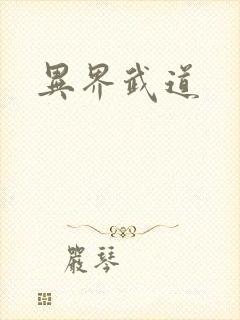 異界武道
嚴琴